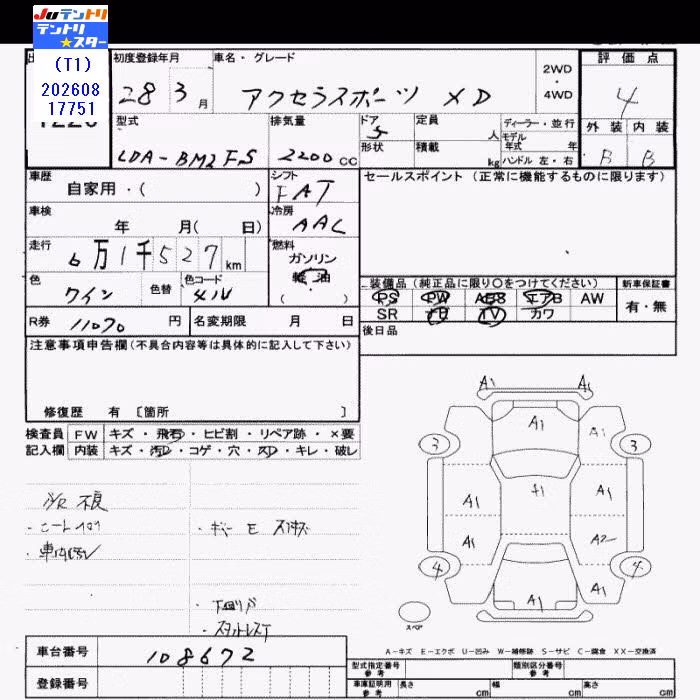 JUテントリ
テントリ★スター
(T1)
202608
17751
初度登録年月
28 3 月
車名・グレード
アクセラスポーツ XD
2WD
・
4WD
評価点
4
外装 内装
B B
型式
LDA-BM2FS
排気量
2200 CC
ドア
5
形状
定員
人
積載
kg
ディーラー・並行
モデル
年式 年
ハンドル 左・右
車歴
自家用・( )
シフト
FAT
セールスポイント (正常に機能するものに限ります)
車検
年 月( 日)
冷房
AAC
走行
6万1千527km
燃料
ガソリン
軽油
( ・ )
色
ワイン
色替
色コード
41V
装備品 (純正品に限り○をつけてください)
PS PW ABS エアB AW
SR ナビ TV カワ
新車保証書
有・無
R券 11070 円
名変期限 月 日
後日品
注意事項申告欄(不具合内容等は具体的に記入して下さい)
修復歴 有 〔箇所 〕
検査員 FW キズ・飛石・ヒビ割・リペア跡・×要
記入欄 内装 キズ・汚れ・コゲ・穴・スレ・キレ・破レ
不良
・シートヨゴレ
・ボデー E スリキズ
・下回りサビ
A1 A1
A1 A1
3 3
A1 A1 A1
A1 A2
4 4
A1 A1
スペア
A-キズ E-エクボ U-凹み W-補修跡 S-サビ C-腐食 XX-交換済
車台番号 108672
登録番号
型式指定番号
参考
類別区分番号
参考
車庫証明用
参考
長さ cm 幅 cm 高さ cm